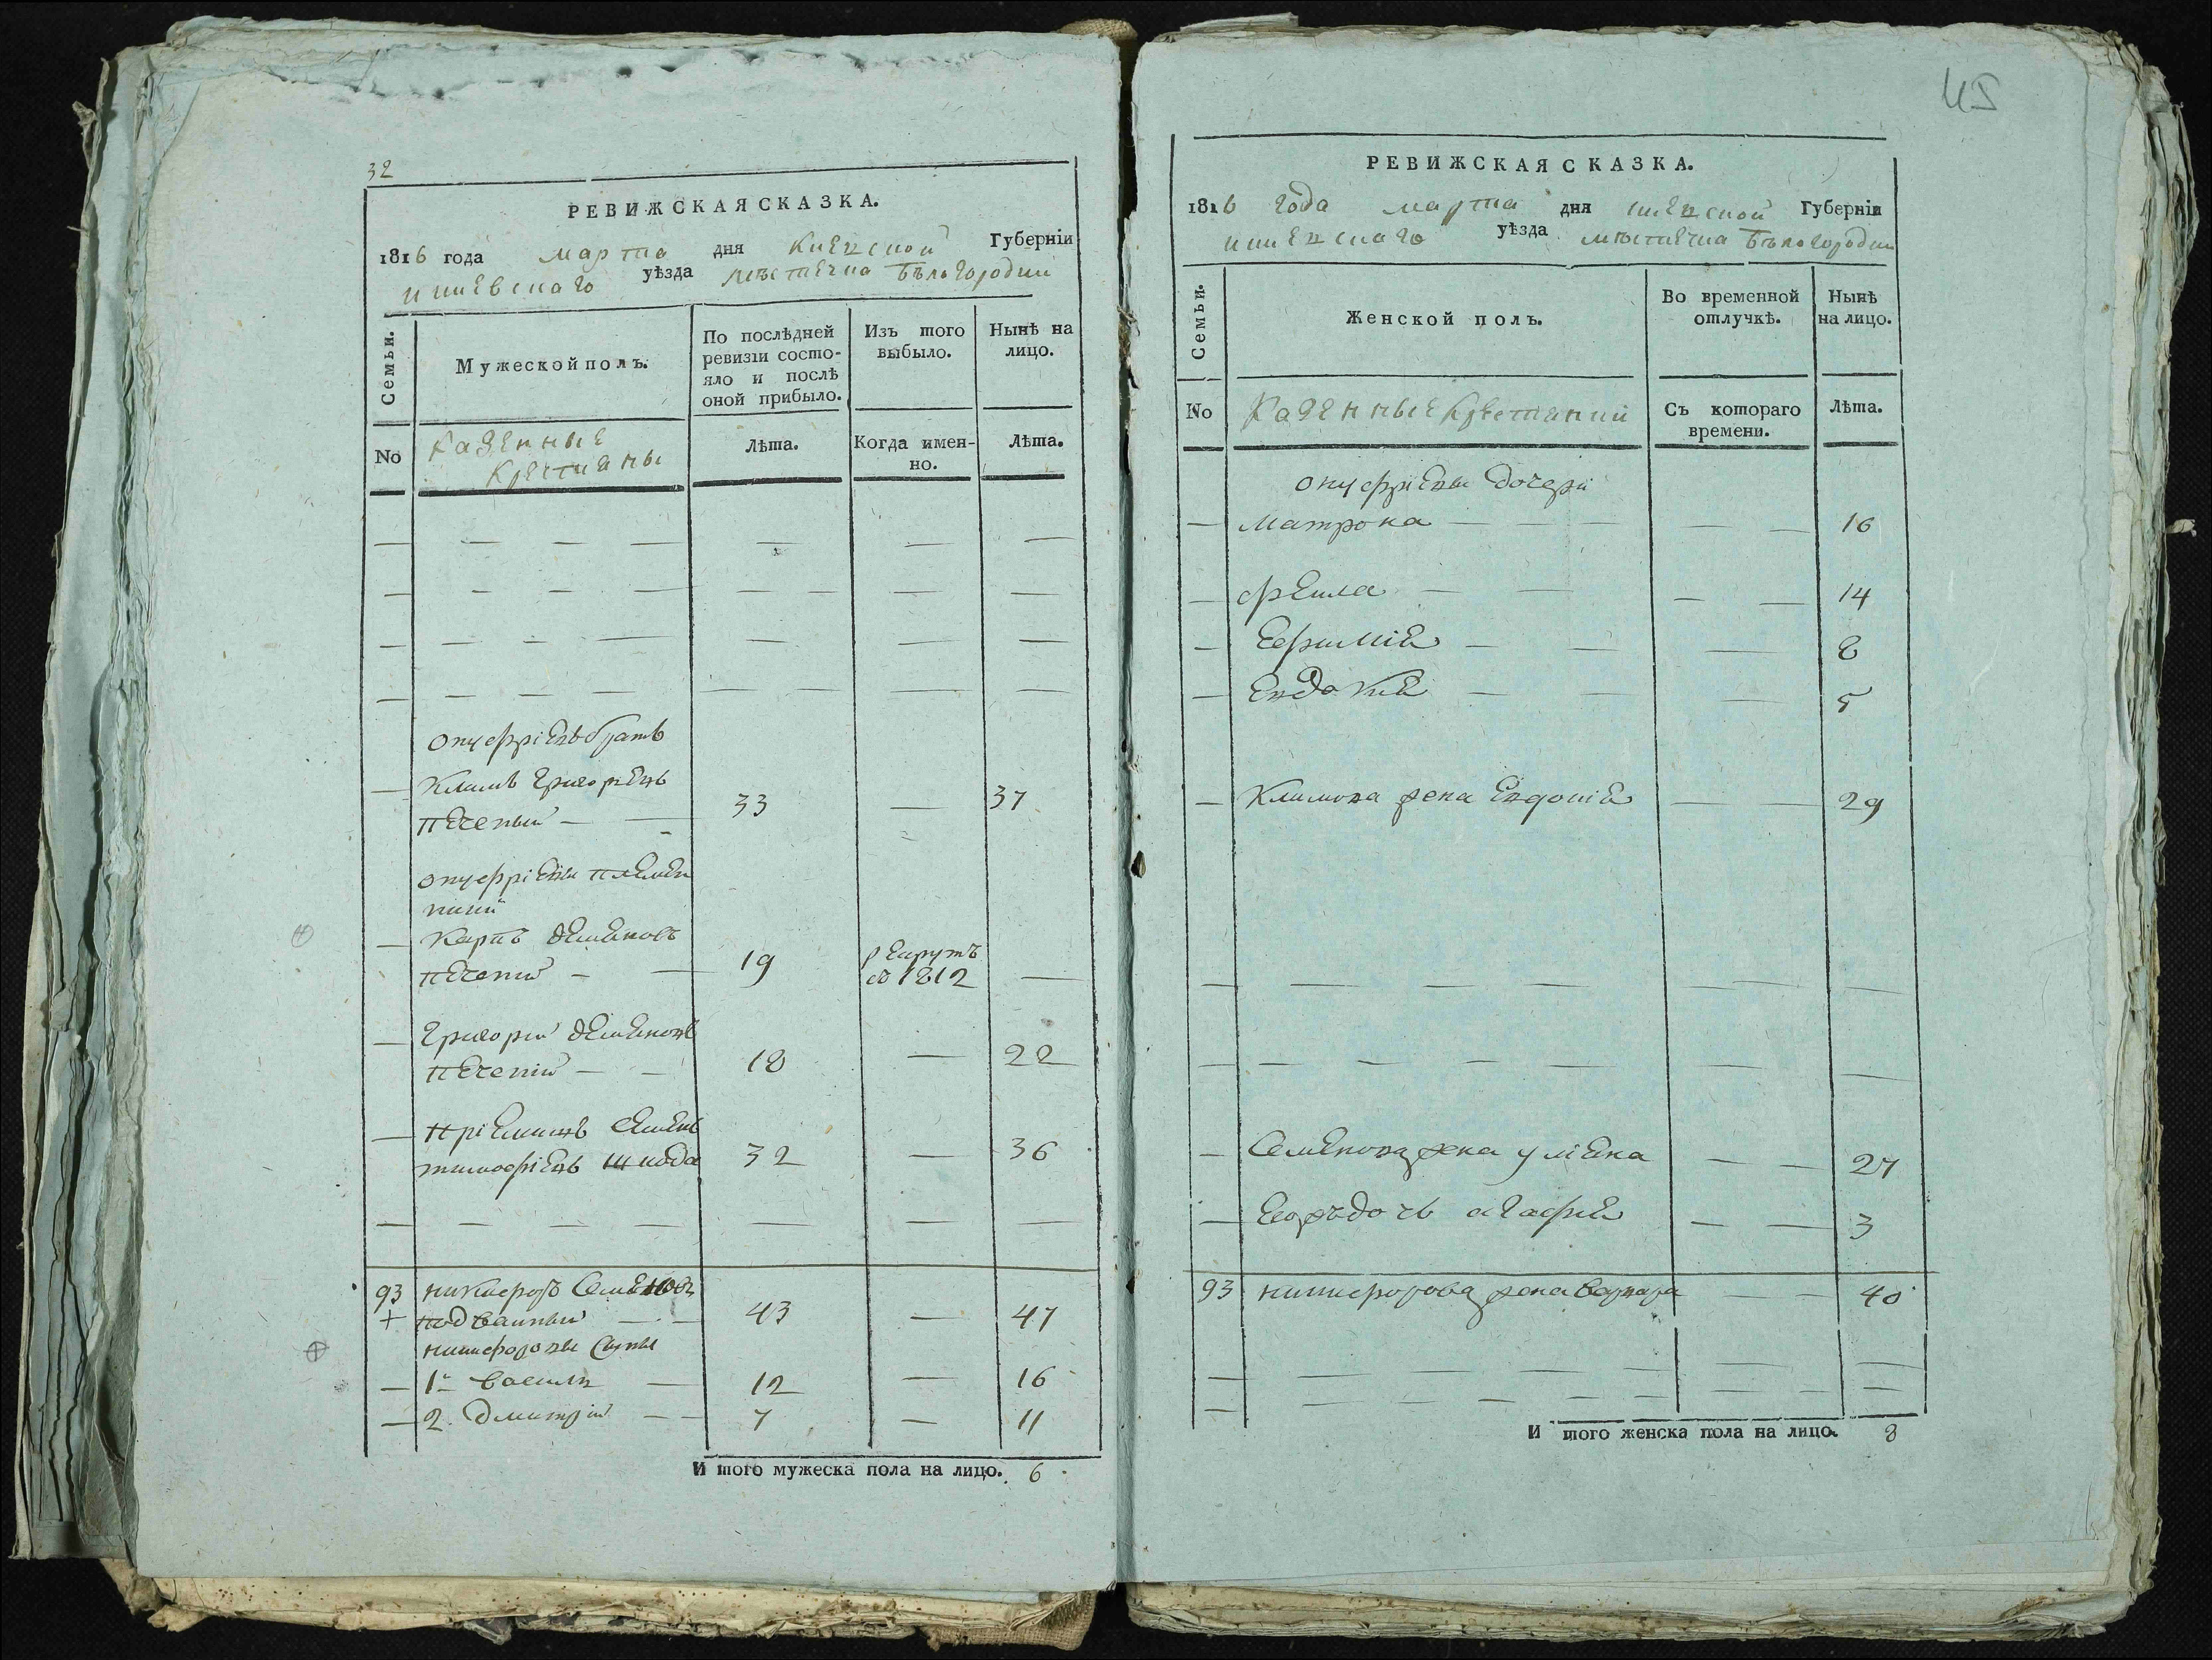 32
РЕВИЖСКАЯ СКАЗКА.
1816 года марта дня Киевской Губерніи
киевскаго уѣзда мѣстечка Бѣлогородки
Семьи.
Мужеской полъ.
По послѣдней ревизіи состо-
яло и послѣ оной прибыло.
Изъ того выбыло.
Нынѣ на лицо.
No
Казенные
Крестияны
Лѣта.
Когда имен-
но.
Лѣта.
Онуфріевъ братъ
— Климъ Григоріевъ
Печеный — — 33 — 37
Онуфріевы племен
ники
— Карпъ Демяновъ
Печеній — — 19 рекрутъ
въ 1812 —
— Григорій Демяновъ
Печеній — — 18 — 22
— Пріемышъ Семенъ
тимофіевъ Шкода 32 — 36
93 Никифоръ Семеновъ
+ Подваный — — 43 — 47
Никифоровы Сыны
— 1й Василь — 12 — 16
— 2. Дмитрій — — 7 — 11
И того мужеска пола на лицо. 6
45
РЕВИЖСКАЯ СКАЗКА.
1816 года марта дня киевской Губерніи
киевскаго уѣзда мѣстечка Бѣлогородки
Семьи.
Женской полъ.
Во временной отлучкѣ.
Нынѣ на лицо.
No
Казенные Крестянкий
Съ котораго времени.
Лѣта.
Онуфріевы дочери
— Матрона — — — — — 16
— фекла — — — — 14
— Ефимія — — — 8
— Евдокія — — — 5
— Климова жена Евдокія — — 29
— Семенова жена уліяна — — 27
— Еожъ дочь агафія — — 3
93 никифорова жена варвара — — 40
И того женска пола на лицо. 8